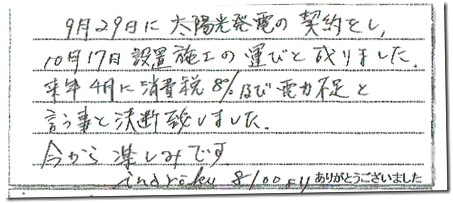 9月29日に太陽光発電の契約をし,
10月17日設置施工の運びと成りました.
来年4月に消費税8%及び電力不足と
言う事と決断致しました.
今から楽しみです
ありがとうございました